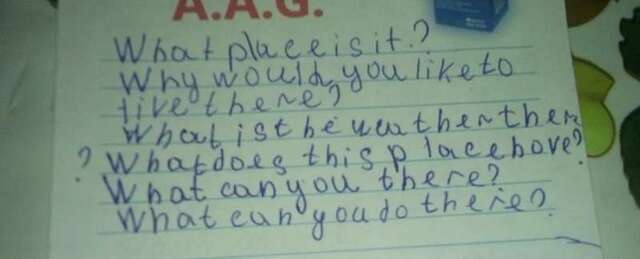 A.A.G.
What place is it?
Why would you like to
live there?
What is the weather ther
? What does this place have?
What can you there?
What can you do there?